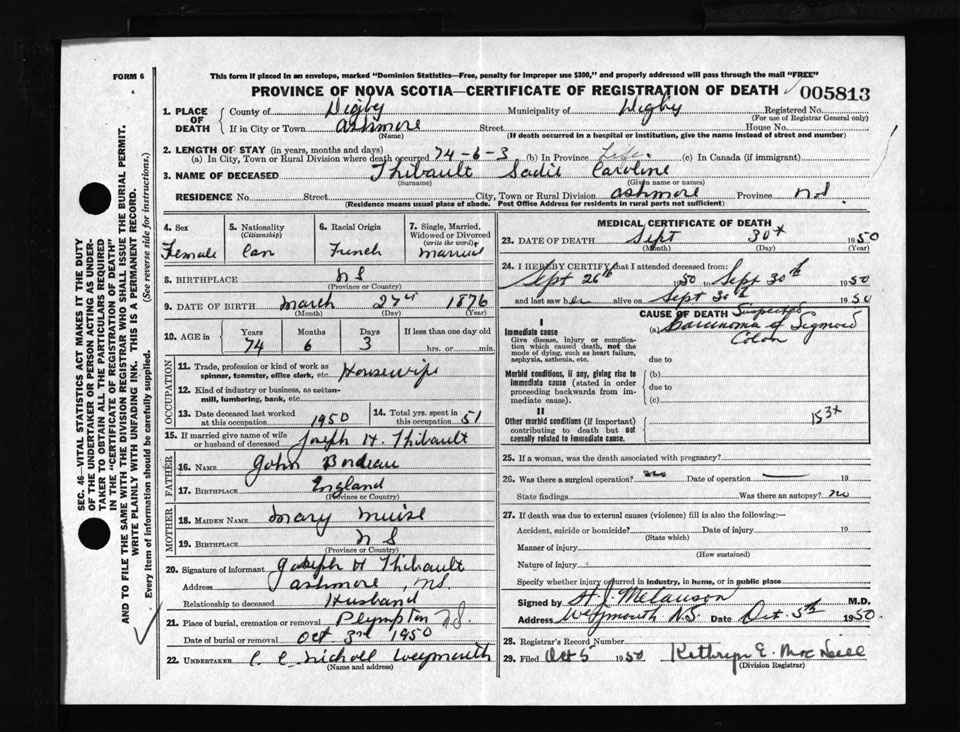 FORM 6
This form if placed in an envelope, marked "Dominion Statistics—Free, penalty for improper use $300," and properly addressed will pass through the mail "FREE"
PROVINCE OF NOVA SCOTIA—CERTIFICATE OF REGISTRATION OF DEATH 005813
1. PLACE OF DEATH
County of Digby Municipality of Digby Registered No.
(For use of Registrar General only)
If in City or Town Ashmore Street House No.
(Name) (If death occurred in a hospital or institution, give the name instead of street and number)
2. LENGTH OF STAY (in years, months and days)
(a) In City, Town or Rural Division where death occurred 74-6-3 (b) In Province Life. (c) In Canada (if immigrant)
3. NAME OF DECEASED Thibault Sadie Caroline
(Surname) (Given name or names)
RESIDENCE No. Street City, Town or Rural Division Ashmore Province N.S.
(Residence means usual place of abode. Post Office Address for residents in rural parts not sufficient)
4. Sex
Female
5. Nationality
(Citizenship)
Can
6. Racial Origin
French
7. Single, Married, Widowed or Divorced
(write the word)
Married
8. BIRTHPLACE N S
(Province or Country)
9. DATE OF BIRTH March 27th 1876
(Month) (Day) (Year)
10. AGE in Years Months Days If less than one day old
74 6 3 hrs. or min.
OCCUPATION
11. Trade, profession or kind of work as spinner, teamster, office clerk, etc. Housewife
12. Kind of industry or business, as cotton-mill, lumbering, bank, etc.
13. Date deceased last worked at this occupation 1950
14. Total yrs. spent in this occupation 51
15. If married give name of wife or husband of deceased Joseph H. Thibault
FATHER
16. NAME John Bordeau
17. BIRTHPLACE England
(Province or Country)
MOTHER
18. MAIDEN NAME Mary Muise
19. BIRTHPLACE N S
(Province or Country)
20. Signature of informant Joseph H Thibault
Address Ashmore, N.S.
Relationship to deceased Husband
21. Place of burial, cremation or removal Plympton N.S.
Date of burial or removal Oct 3rd 1950
22. UNDERTAKER Nicholl Weymouth
(Name and address)
MEDICAL CERTIFICATE OF DEATH
23. DATE OF DEATH Sept 30th 1950
(Month) (Day) (Year)
24. I HEREBY CERTIFY that I attended deceased from:
Sept 26th 1950 to Sept 30th 1950
and last saw her alive on Sept 30th 1950
CAUSE OF DEATH Suspected
I
Immediate cause (a) Carcinoma of Sigmoid Colon
Give disease, injury or complication which caused death, not the mode of dying, such as heart failure, asphyxia, asthenia, etc. due to
Morbid conditions, if any, giving rise to immediate cause (stated in order proceeding backwards from immediate cause). (b) due to (c)
II
Other morbid conditions (if important) contributing to death but not causally related to immediate cause.
153x
25. If a woman, was the death associated with pregnancy?
26. Was there a surgical operation? no Date of operation — 19
State findings Was there an autopsy? no
27. If death was due to external causes (violence) fill in also the following:—
Accident, suicide or homicide? Date of injury 19
(State which)
Manner of injury
(How sustained)
Nature of injury
Specify whether injury occurred in industry, in home, or in public place
Signed by H. J. Melanson M.D.
Address Weymouth N.S. Date Oct. 5th 1950.
28. Registrar's Record Number
29. Filed Oct 5 1950 Kathryn E. MacNeill
(Division Registrar)
SEC. 46—VITAL STATISTICS ACT MAKES IT THE DUTY
OF THE UNDERTAKER OR PERSON ACTING AS UNDER-
TAKER TO OBTAIN ALL THE PARTICULARS REQUIRED
IN THE "CERTIFICATE OF REGISTRATION OF DEATH"
AND TO FILE THE SAME WITH THE DIVISION REGISTRAR WHO SHALL ISSUE THE BURIAL PERMIT.
WRITE PLAINLY WITH UNFADING INK. THIS IS A PERMANENT RECORD.
Every item of information should be carefully supplied. (See reverse side for instructions.)